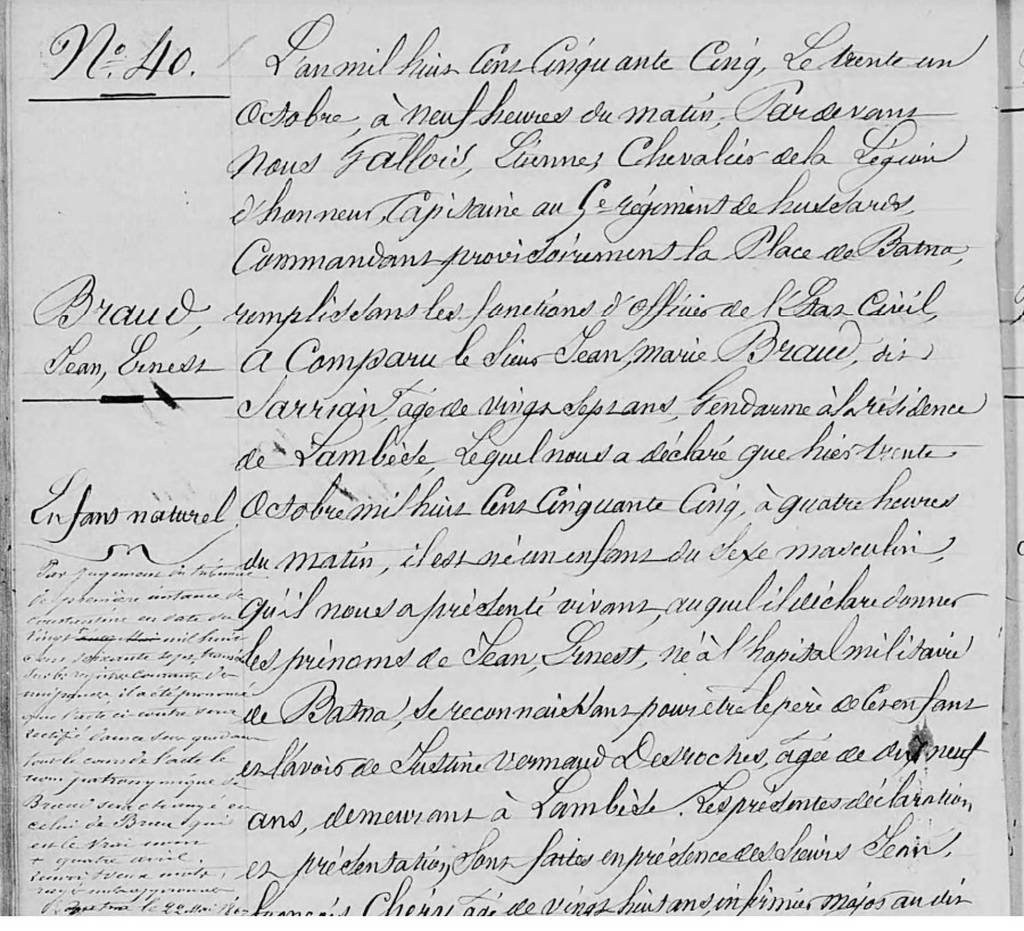 N° 40.
L'an mil huit Cent Cinquante Cinq, Le trente un
Octobre, à neuf heures du matin, Pardevant
Nous Gallois, Etienne, Chevalier de la Légion
d'honneur, Capitaine au 5e régiment de hussards,
Commandant provisoirement la Place de Batna,
remplissant les fonctions d'officier de l'Etat Civil,
A Comparu le Sieur Jean, marie Braud, dit
Sarrian, âgé de vingt Sept ans, Gendarme à la résidence
de Lambèse, Lequel nous a déclaré que hier trente
Octobre mil huit Cent Cinquante Cinq, à quatre heures
du matin, il est né un enfant du Sexe masculin,
qu'il nous a présenté vivant, auquel il déclare donner
les prénoms de Jean, Ernest, né à l'hopital militaire
de Batna, se reconnaissant pour être le père de Cet enfant
et l'avoir de Justine Vermaud Desroches, âgée de dix neuf
ans, demeurant à Lambèse. Les présentes déclaration
et présentation, Sont faites en présence des Sieurs Jean,
françois Chéry, âgé de vingt huit ans, infirmier major au dit
Braud,
Jean, Ernest
Enfant naturel
Par jugement du tribunal
de première instance de
Constantine en date du
vingt mil huit
cent soixante sept, transcrit
sur les registres courants de
il a été prononcé
que l'acte ci contre sera
rectifié dans
tout le corps de l'acte le
nom patronymique de
Braud sera changé en
celui de Breu qui
est le vrai nom
+ quatre avril.
Batna le 22 Mai